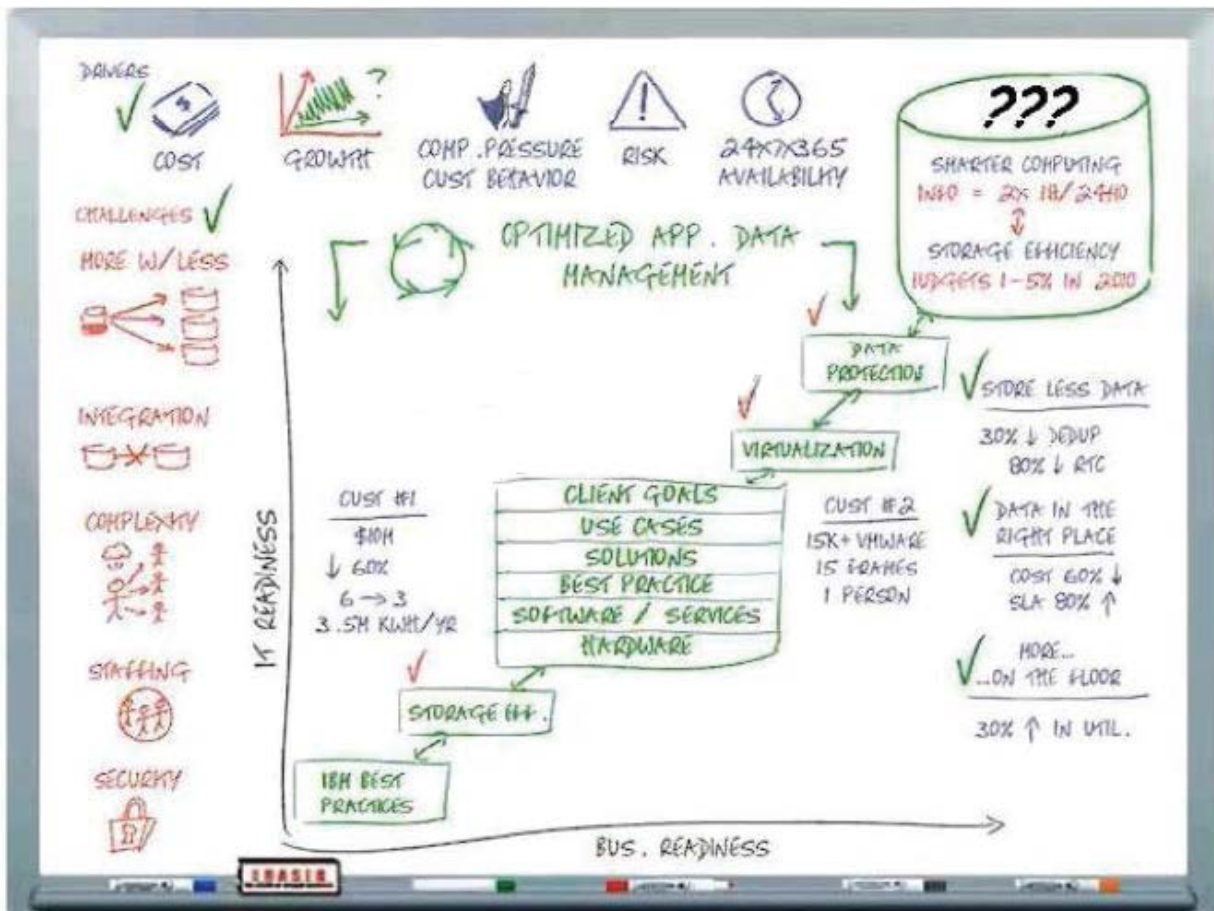 DRIVERS
$
COST
?
GROWTH
COMP. PRESSURE
CUST BEHAVIOR
!
RISK
24x7x365
AVAILABILITY
???
SMARTER COMPUTING
INFO = 2x
STORAGE EFFICIENCY
BUDGETS 1-5% IN 2010
CHALLENGES
MORE W/LESS
INTEGRATION
COMPLEXITY
STAFFING
SECURITY
OPTIMIZED APP. DATA
MANAGEMENT
DATA
PROTECTION
VIRTUALIZATION
CLIENT GOALS
USE CASES
SOLUTIONS
BEST PRACTICE
SOFTWARE / SERVICES
HARDWARE
STORAGE EFF.
IBM BEST
PRACTICES
IT READINESS
BUS. READINESS
CUST #1
$10M
↓ 60%
6 → 3
3.5M KWH/YR
CUST #2
15K+ VMWARE
15 FRAMES
1 PERSON
STORE LESS DATA
30% ↓ DEDUP
80% ↓ RTC
DATA IN THE
RIGHT PLACE
COST 60% ↓
SLA 80% ↑
MORE...
...ON THE FLOOR
30% ↑ IN UTIL.